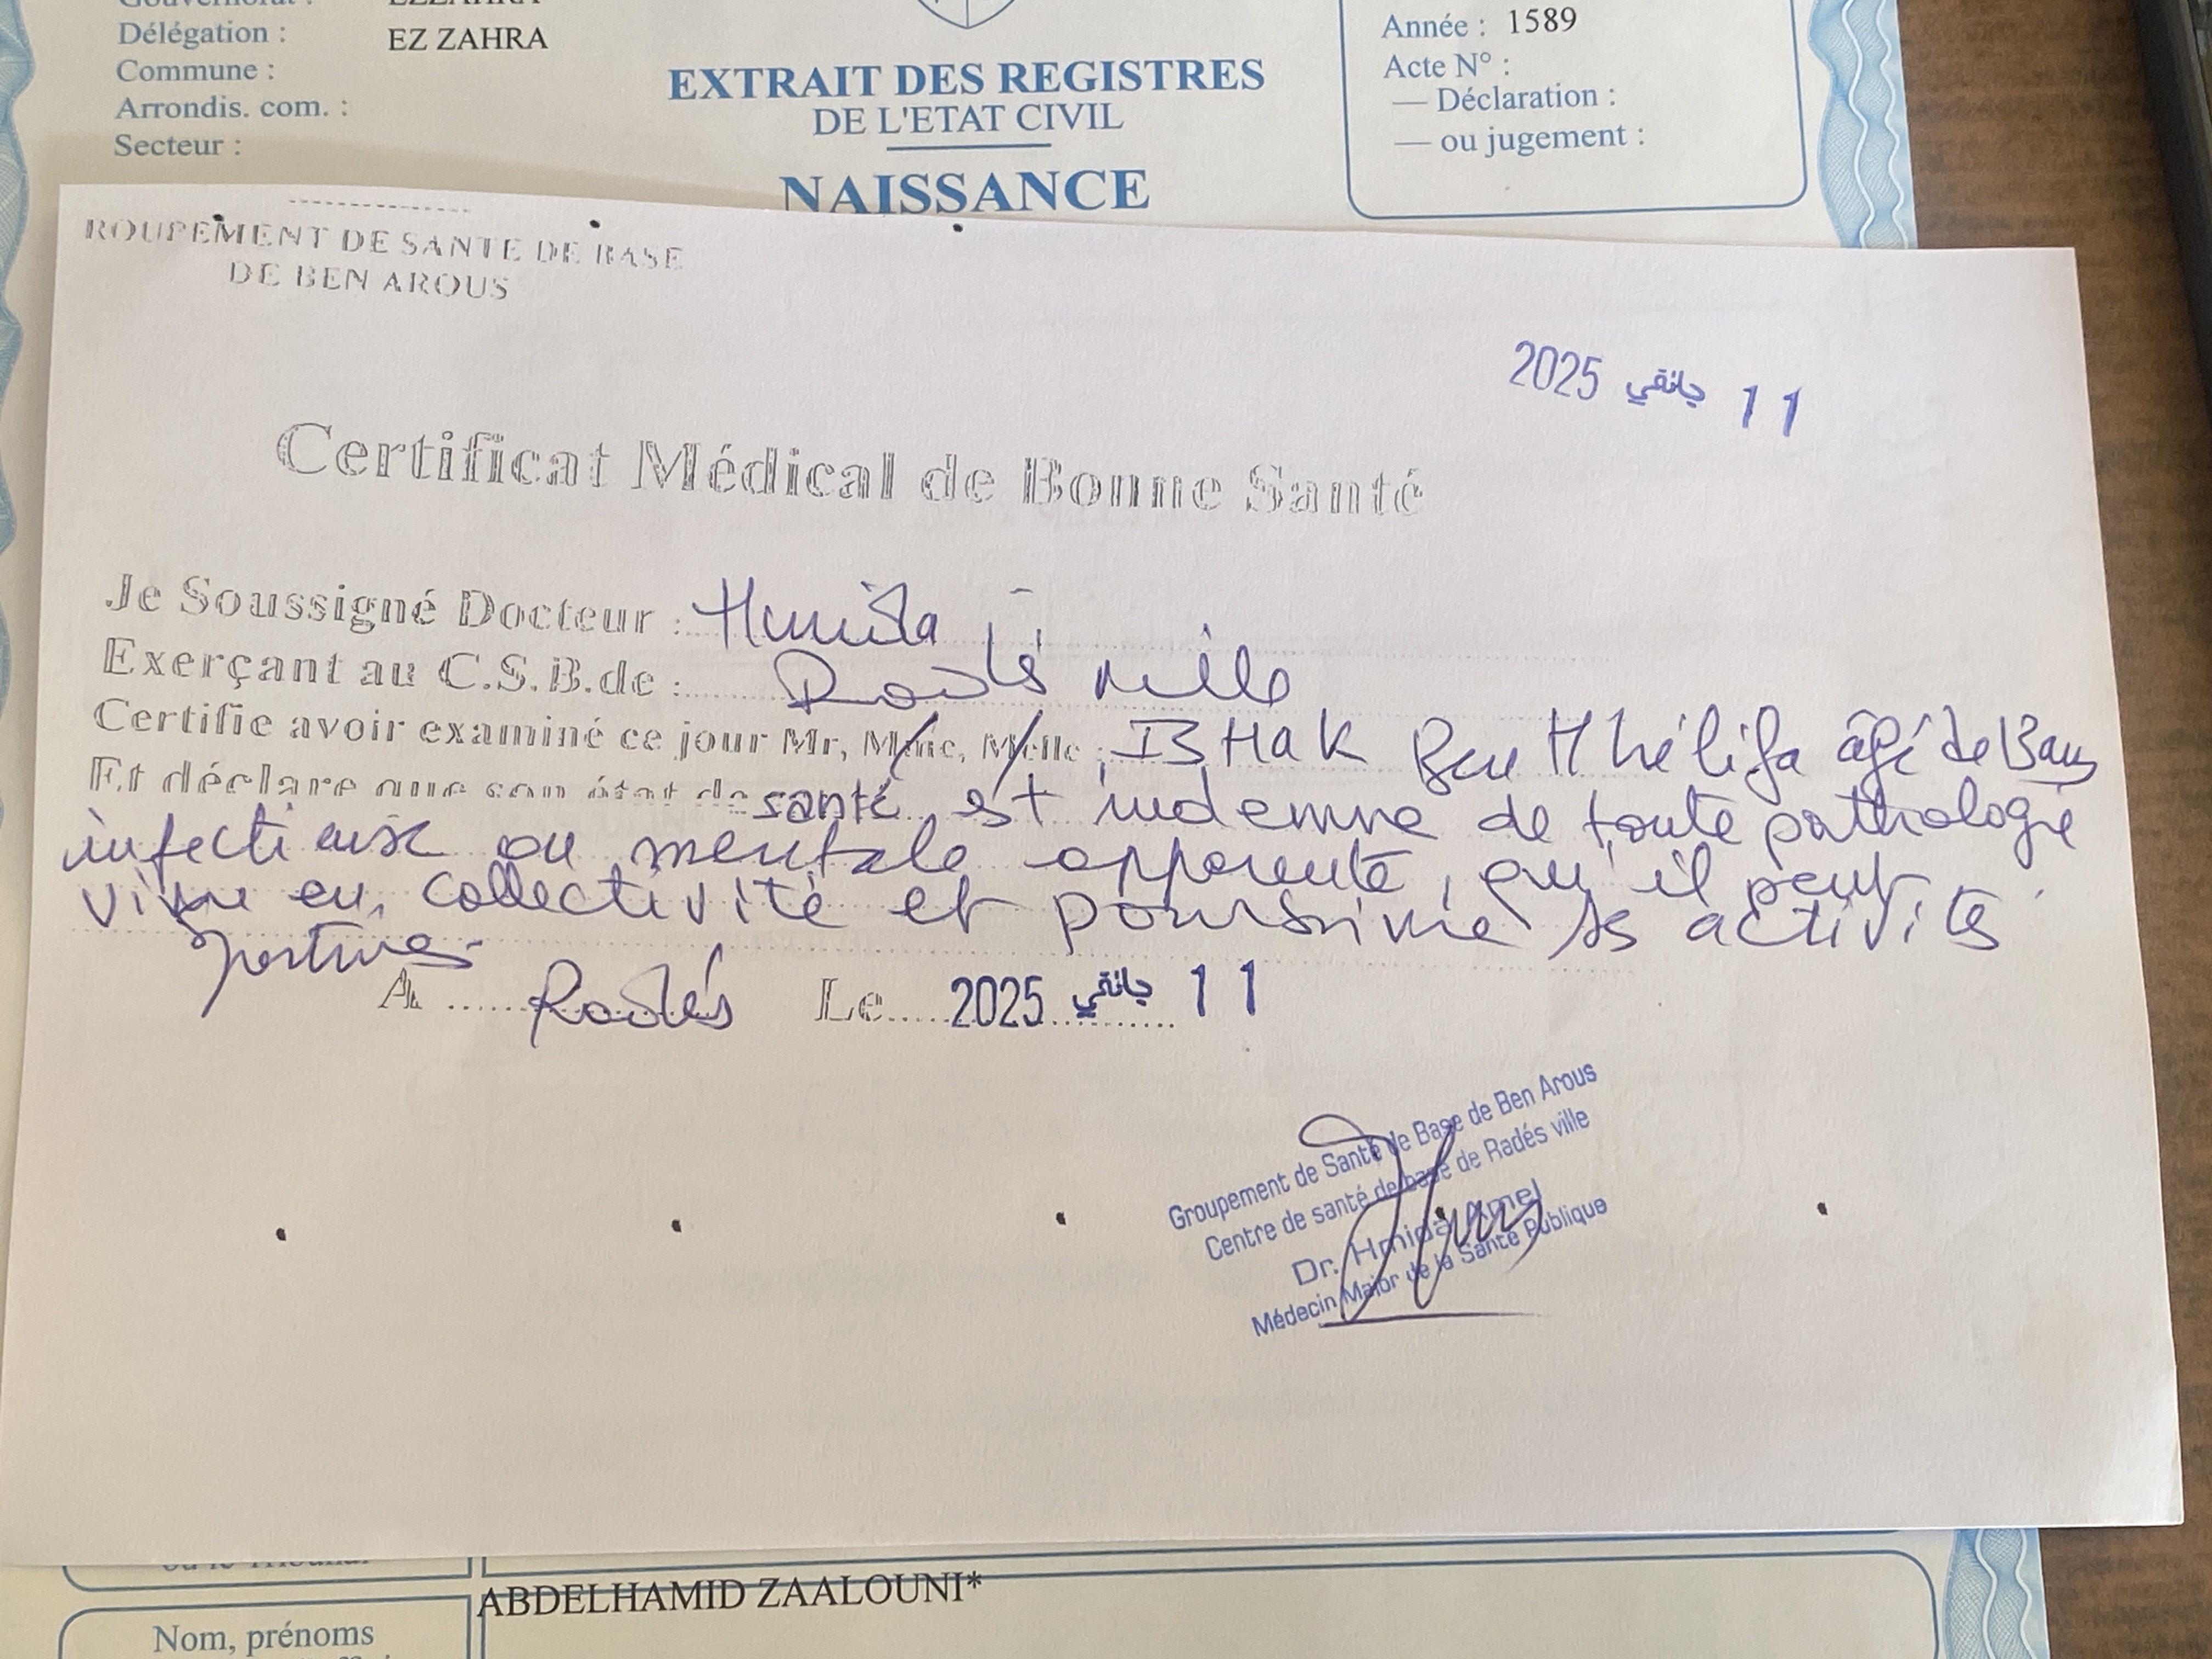 Délégation : EZ ZAHRA
Commune :
Arrondis. com. :
Secteur :
EXTRAIT DES REGISTRES
DE L'ETAT CIVIL
NAISSANCE
Année : 1589
Acte N° :
— Déclaration :
— ou jugement :
ROUPEMENT DE SANTE DE BASE
DE BEN AROUS
11 جانفي 2025
Certificat Médical de Bonne Santé
Je Soussigné Docteur : Hmida
Exerçant au C.S.B.de : Radès ville
Certifie avoir examiné ce jour Mr, Mme, Melle : ISHAK Ben Khélifa âgé de 13 ans
Et déclare que son état de santé est indemne de toute pathologie
infectieuse ou mentale apparente, qu'il peut
vivre en collectivité et poursuivre ses activités
sportives
A Radès Le 11 جانفي 2025
Groupement de Santé de Base de Ben Arous
Centre de santé de base de Radés ville
Dr. Hmida Amel
Médecin Major de la Santé Publique
ABDELHAMID ZAALOUNI*
Nom, prénoms